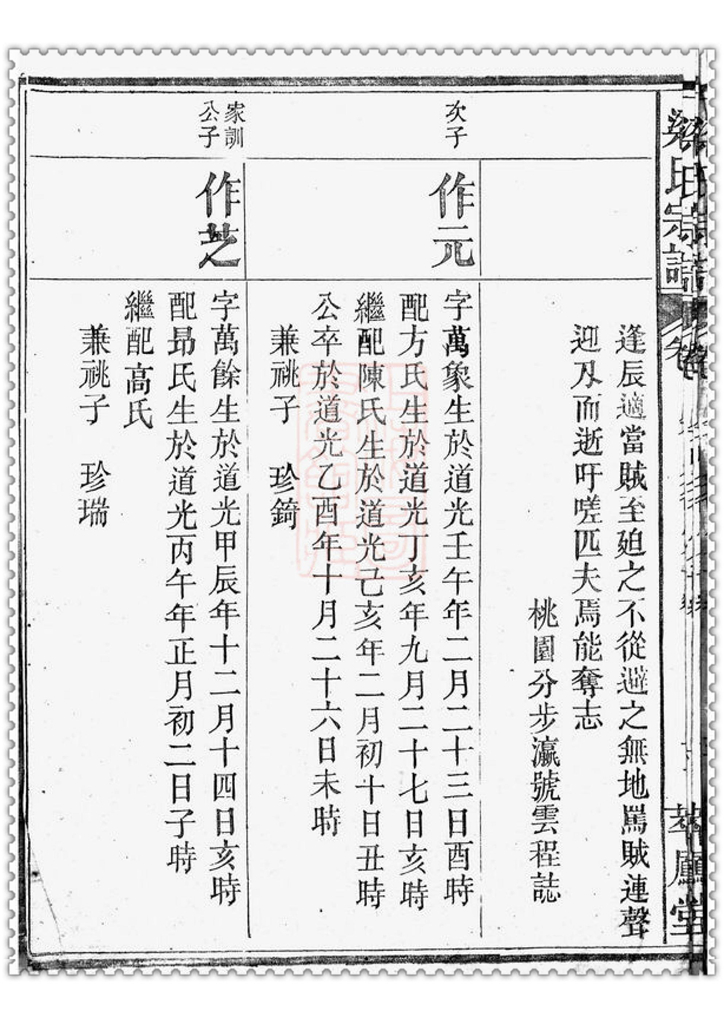 梁氏宗譜
逢辰適當賊至廹之不從避之無地罵賊連聲
迎刄而逝吁嗟匹夫焉能奪志
桃園分步瀛號雲程誌
次子
作元
字萬象生於道光壬午年二月二十三日酉時
配方氏生於道光丁亥年九月二十七日亥時
繼配陳氏生於道光己亥年二月初十日丑時
公卒於道光乙酉年十月二十六日未時
兼祧子 珍錡
家訓
公子
作芝
字萬餘生於道光甲辰年十二月十四日亥時
配昻氏生於道光丙午年正月初二日子時
繼配高氏
兼祧子 珍瑞